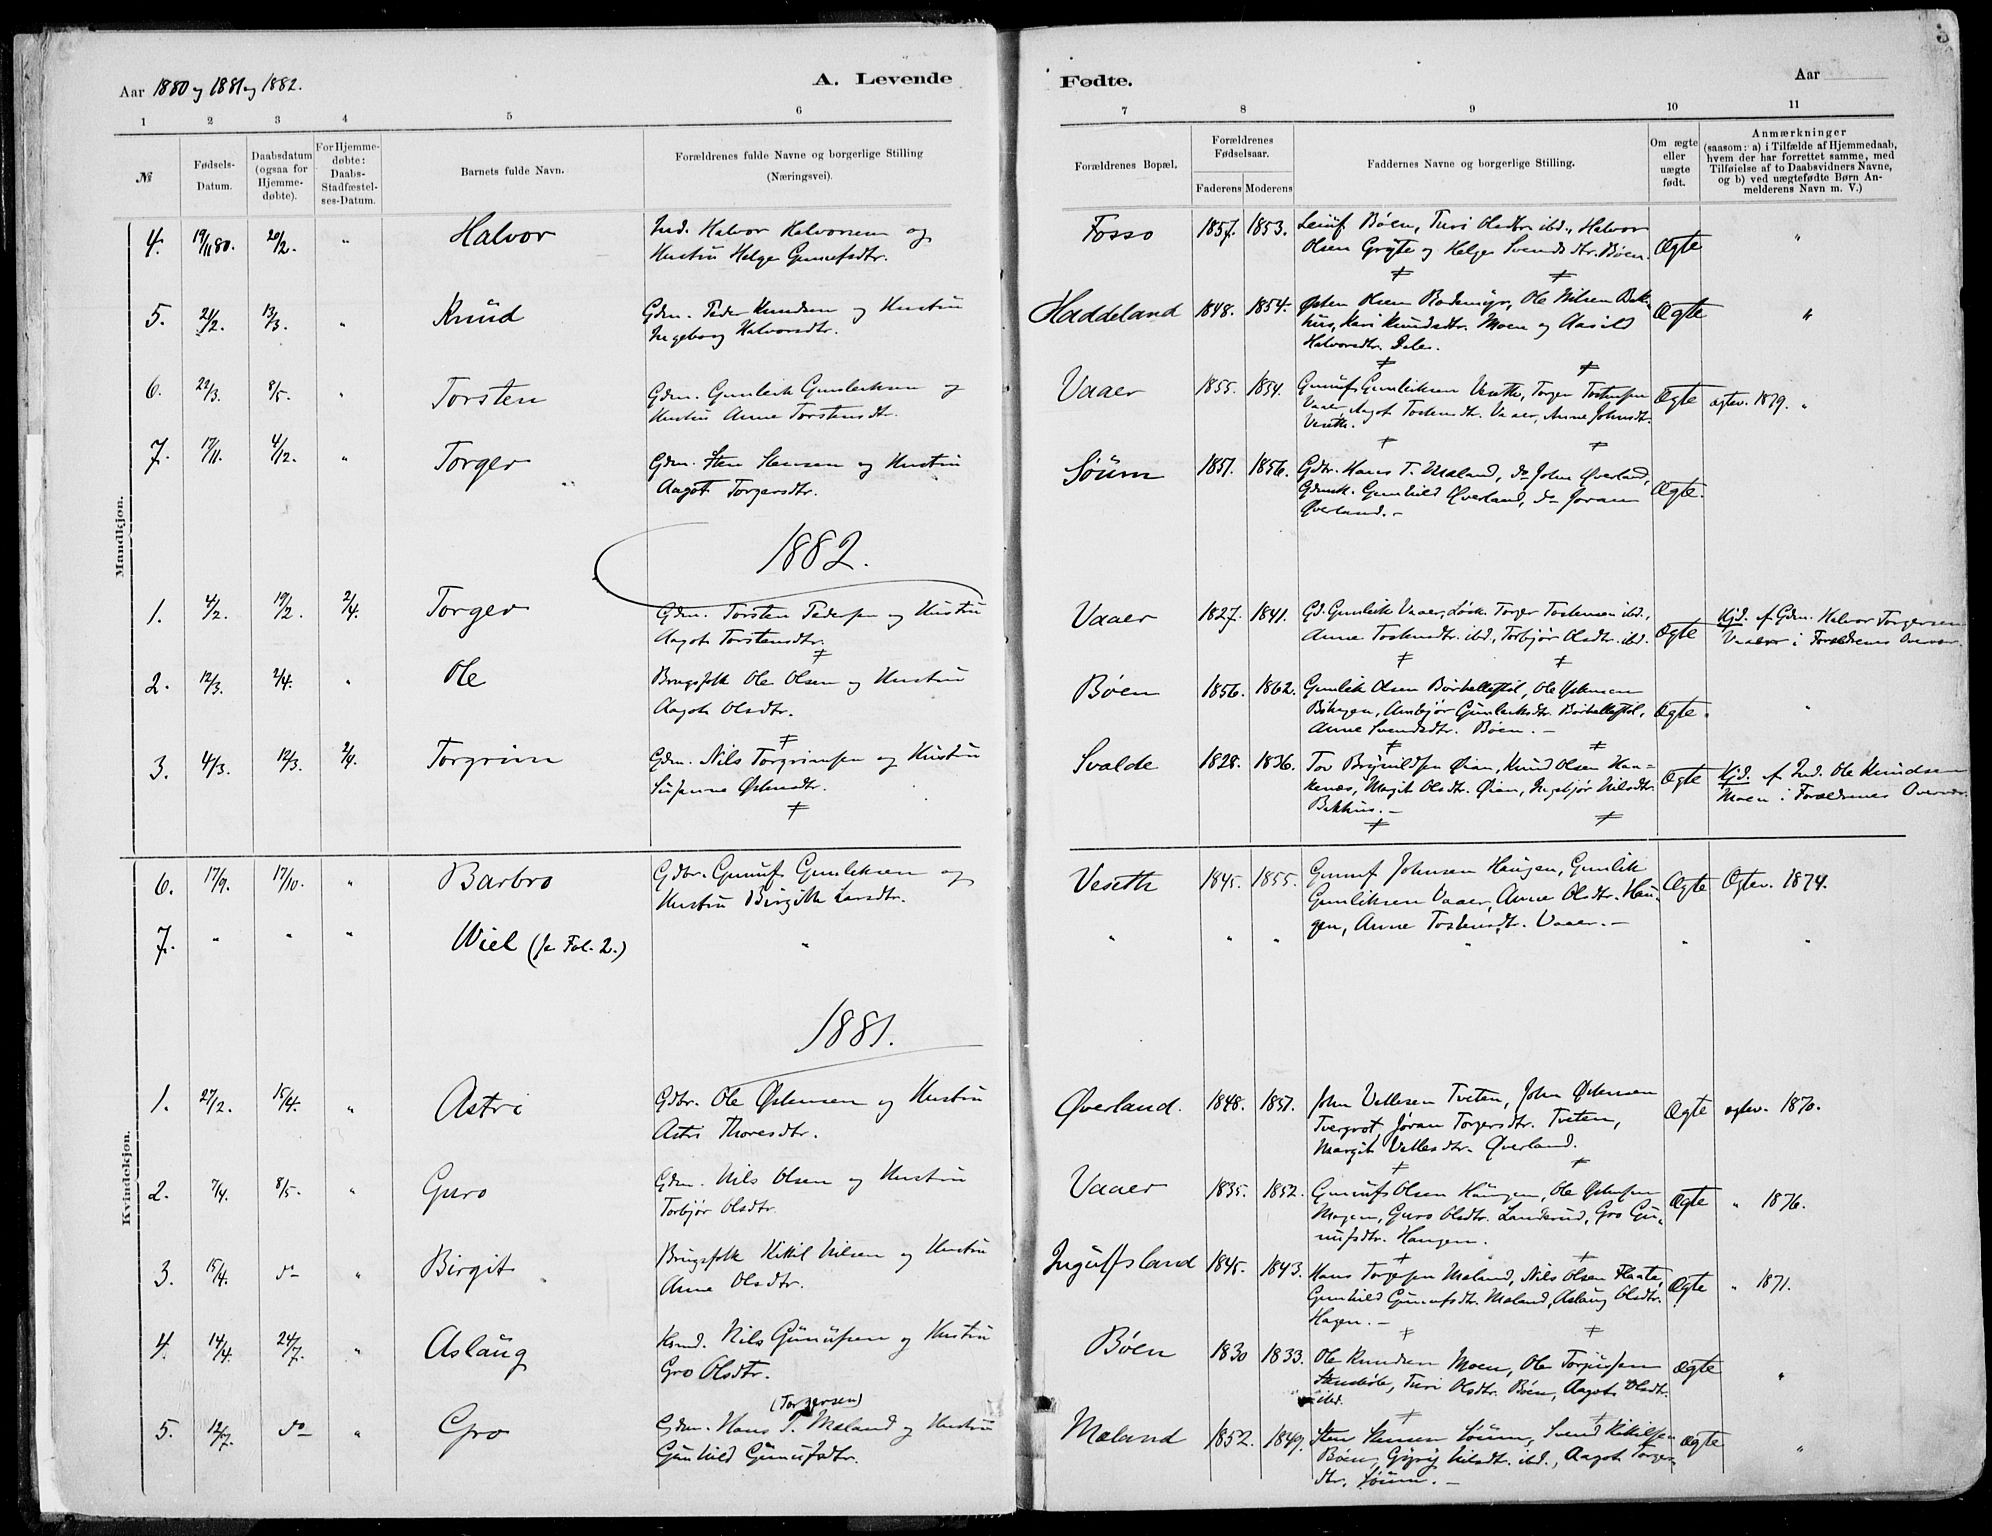 Aar 1880 og 1881 og 1882.
A. Levende
Fødte.
Aar
1 2 3 4 5 6 7 8 9 10 11
№
Fødsels-Datum.
Daabsdatum (ogsaa for Hjemme-døbte).
For Hjemme-døbte: Daabs-Stadfæstel-ses-Datum.
Barnets fulde Navn.
Forældrenes fulde Navne og borgerlige Stilling (Næringsvei).
Forældrenes Bopæl.
Forældrenes Fødselsaar.
Faderens Moderens
Faddernes Navne og borgerlige Stilling.
Om ægte eller uægte født.
Anmærkninger
(saasom: a) i Tilfælde af Hjemmedaab, hvem der har forrettet samme, med Tilføielse af to Daabsvidners Navne, og b) ved uægtefødte Børn An-melderens Navn m. V.)
Mandkjøn.
4. 19/11 80. 20/2. " Halvor
Ind. Halvor Halvorsen og
Hustru Helge Gunufsdtr.
Fosso 1857. 1853.
Leiuf Bøen, Turi Olsdtr. ibd., Halvor
Olsen Grøte og Helge Svendsdtr. Bøen.
Ægte "
5. 21/2. 13/3. " Knud
Gdm. Peder Knudsen og Hustru
Ingeborg Halvorsdtr.
Haddeland 1848. 1854.
Østen Olsen Rodemyr, Ole Nilsen Bak-
hus, Kari Knudsdtr. Moen og Aasild
Halvorsdtr. Dale.
Ægte "
6. 22/3. 8/5. " Torsten
Gdm. Gunleik Gunleiksen og
Hustru Anne Torstensdtr.
Vaaer 1855. 1854.
Gunuf Gunleiksen Veseth, Torger Tostensen
Vaaer, Aagot Tostensdtr. Vaaer, Anne Johnsdtr.
Veseth.
Ægte ægtev. 1879. "
7. 17/11. 4/12. " Torger
Gdm. Sten Stensen og Hustru
Aagot Torgersdtr.
Søum 1851. 1856.
Gdbr. Hans T. Mæland, do John Øverland,
Gdmk. Gunhild Øverland, do Jøran
Øverland. -
Ægte.
1882.
1. 4/2. 19/2. 2/4. Torger
Gdm. Torsten Pedersen og Hustru
Aagot Torstensdtr.
Vaaer 1827. 1841.
Gd. Gunleik Vaaer, Løsk. Torger Tostensen ibd.,
Anne Tostensdtr. ibd., Torbjør Olsdtr. ibd.
Ægte
Hjd. af Gdm. Halvor Torgersen
Vaaer i Forældrenes Overvær.
2. 12/3. 2/4. " Ole
Brugsfolk Ole Olsen og Hustru
Aagot Olsdtr.
Bøen 1856. 1862.
Gunleik Olsen Børtvelleftøl, Ole Østensen
Bøhagen, Ambjør Gunleiksdtr. Børtvelleftøl,
Anne Svendsdtr. Bøen. -
Ægte. "
3. 4/3. 12/3. 2/4. Torgrim
Gdm. Nils Torgrimsen og Hustru
Susanne Østensdtr.
Svalde 1828. 1836.
Tov Brynildsen Øian, Knud Olsen Haa-
kenæs, Margit Olsdtr. Øian, Ingebjør Nilsdtr.
Bakhus. -
Ægte
Hjd. af Ind. Ole Knudsen
Moen i Forældrenes Overvær.
Kvindekjøn.
6. 17/9. 17/10. " Barbro
Gdbr. Gunuf Gunleiksen og
Hustru Birgitte Larsdtr.
Veseth 1845. 1855.
Gunuf Johnsen Haugen, Gunleik
Gunleiksen Vaaer, Anne Olsdtr. Hau-
gen, Anne Tostensdtr. Vaaer. -
Ægte Ægtev. 1874.
7. " " " Wiel (se Fol. 2.) " " " " " " "
1881.
1. 27/2. 15/4. " Astri
Gdbr. Ole Østensen og Hustru
Astri Thoresdtr.
Øverland. 1848. 1851.
John Vetlesen Tveten, John Østensen
Tvergrot, Jøran Torgersdtr. Tveten,
Margit Vetlesdtr. Øverland.
Ægte ægtev. 1870.
2. 7/4. 8/5. " Guro
Gdm. Nils Olsen og Hustru
Torbjør Olsdtr.
Vaaer 1835. 1852.
Gunuf Olsen Haugen, Ole Østensen
Mogen, Guro Olsdtr. Landerud, Gro Gu-
nufsdtr. Haugen.
Ægte " 1876.
3. 15/4. do " Birgit
Brugsfolk Kittil Nilsen og Hustru
Anne Olsdtr.
Ingulfsland 1845. 1843.
Hans Torgersen Mæland, Nils Olsen Flaata,
Gunhild Gunufsdtr. Mæland, Aslaug Olsdtr.
Hagen. -
Ægte " 1871.
4. 14/4. 24/7. " Aslaug
Husmd. Nils Gunufsen og Hustru
Gro Olsdtr.
Bøen 1830 1833.
Ole Knudsen Moen, Ole Torjussen
Stenbøle, Turi Olsdtr. Bøen, Aagot Olsdtr.
ibd.
Ægte "
5. 12/7. do " Gro
(Torgersen)
Gdm. Hans T. Mæland og Hustru
Gunhild Gunufsdtr.
Mæland 1852. 1849.
Sten Stensen Søum, Svend Kittilsen
Bøen, Gyrig Nilsdtr. ibd., Aagot Torgers-
dtr. Søum. -
Ægte "